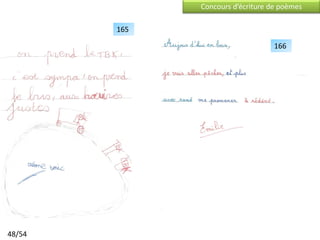 Concours d'écriture de poèmes
165
on prend le TER.
c'est sympa! on prend
le bus, aux horaires
justes
166
Aujourd'hui en bus,
je vais aller pêcher, et plus
me promener
Emilie
48/54